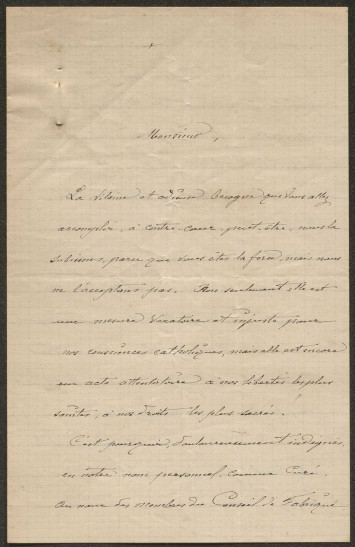 Monsieur,
La vilaine et odieuse besogne que vous allez
accomplir, à contre-cœur, peut-être, nous la
subirons, parce que vous êtes la force, mais nous
ne l'acceptons pas. Non seulement elle est
une mesure vexatoire et injuste pour
nos consciences catholiques, mais elle est encore
un acte attentatoire à nos libertés les plus
saintes, à nos droits les plus sacrés.
C'est pourquoi, douloureusement indignés,
en notre nom personnel, comme Curé,
au nom des membres du Conseil de Fabrique